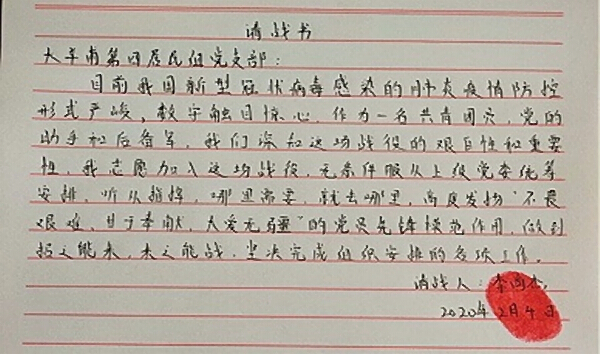 请战书
大辛庄第四居民组党支部：
目前我国新型冠状病毒感染的肺炎疫情防控
形式严峻，数字触目惊心，作为一名共青团员，党的
助手和后备军，我们深知这场战役的艰巨性和重要
性，我志愿加入这场战役，无条件服从上级党委统筹
安排，听从指挥，哪里需要，就去哪里，高度发扬“不畏
艰难，甘于奉献，大爱无疆”的党员先锋模范作用，做到
招之能来，来之能战，坚决完成组织安排的各项工作。
请战人：李
2020年2月4日